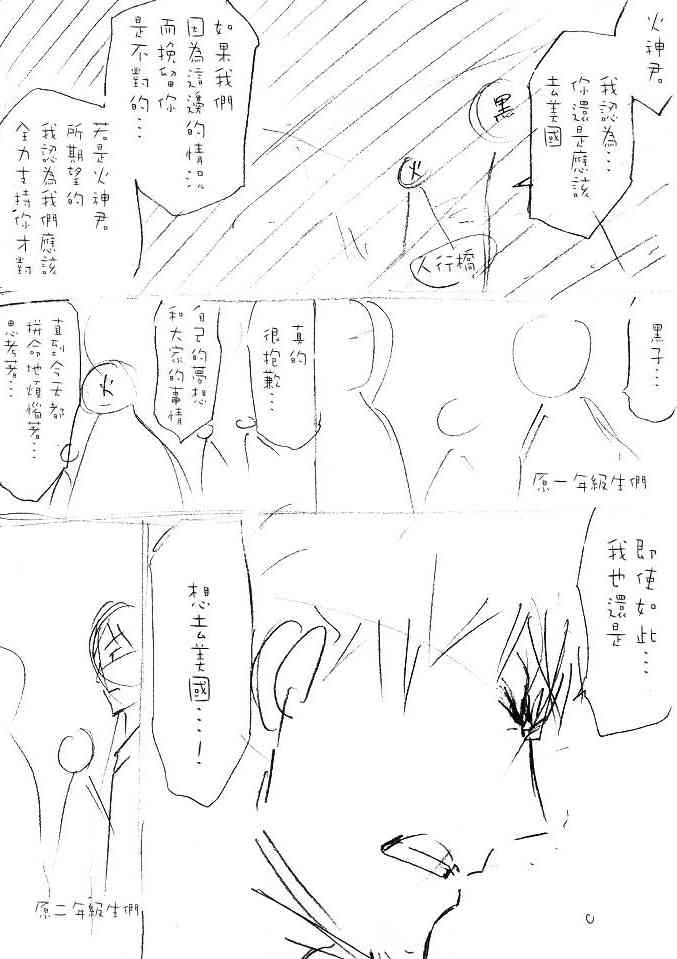 火神君。
我認為…
你還是應該
去美國
黑
火
人行橋
如果我們
因為這邊的情況
而挽留你
是不對的…
若是火神君。
所期望的
我認為我們應該
全力支持你才對
黑子…
原一年級生們
真的
很抱歉…
自己的夢想
和大家的事情
火
直到今天都
拼命地煩惱著…
思考著…
即使如此…
我也還是
想去美國…！
原二年級生們